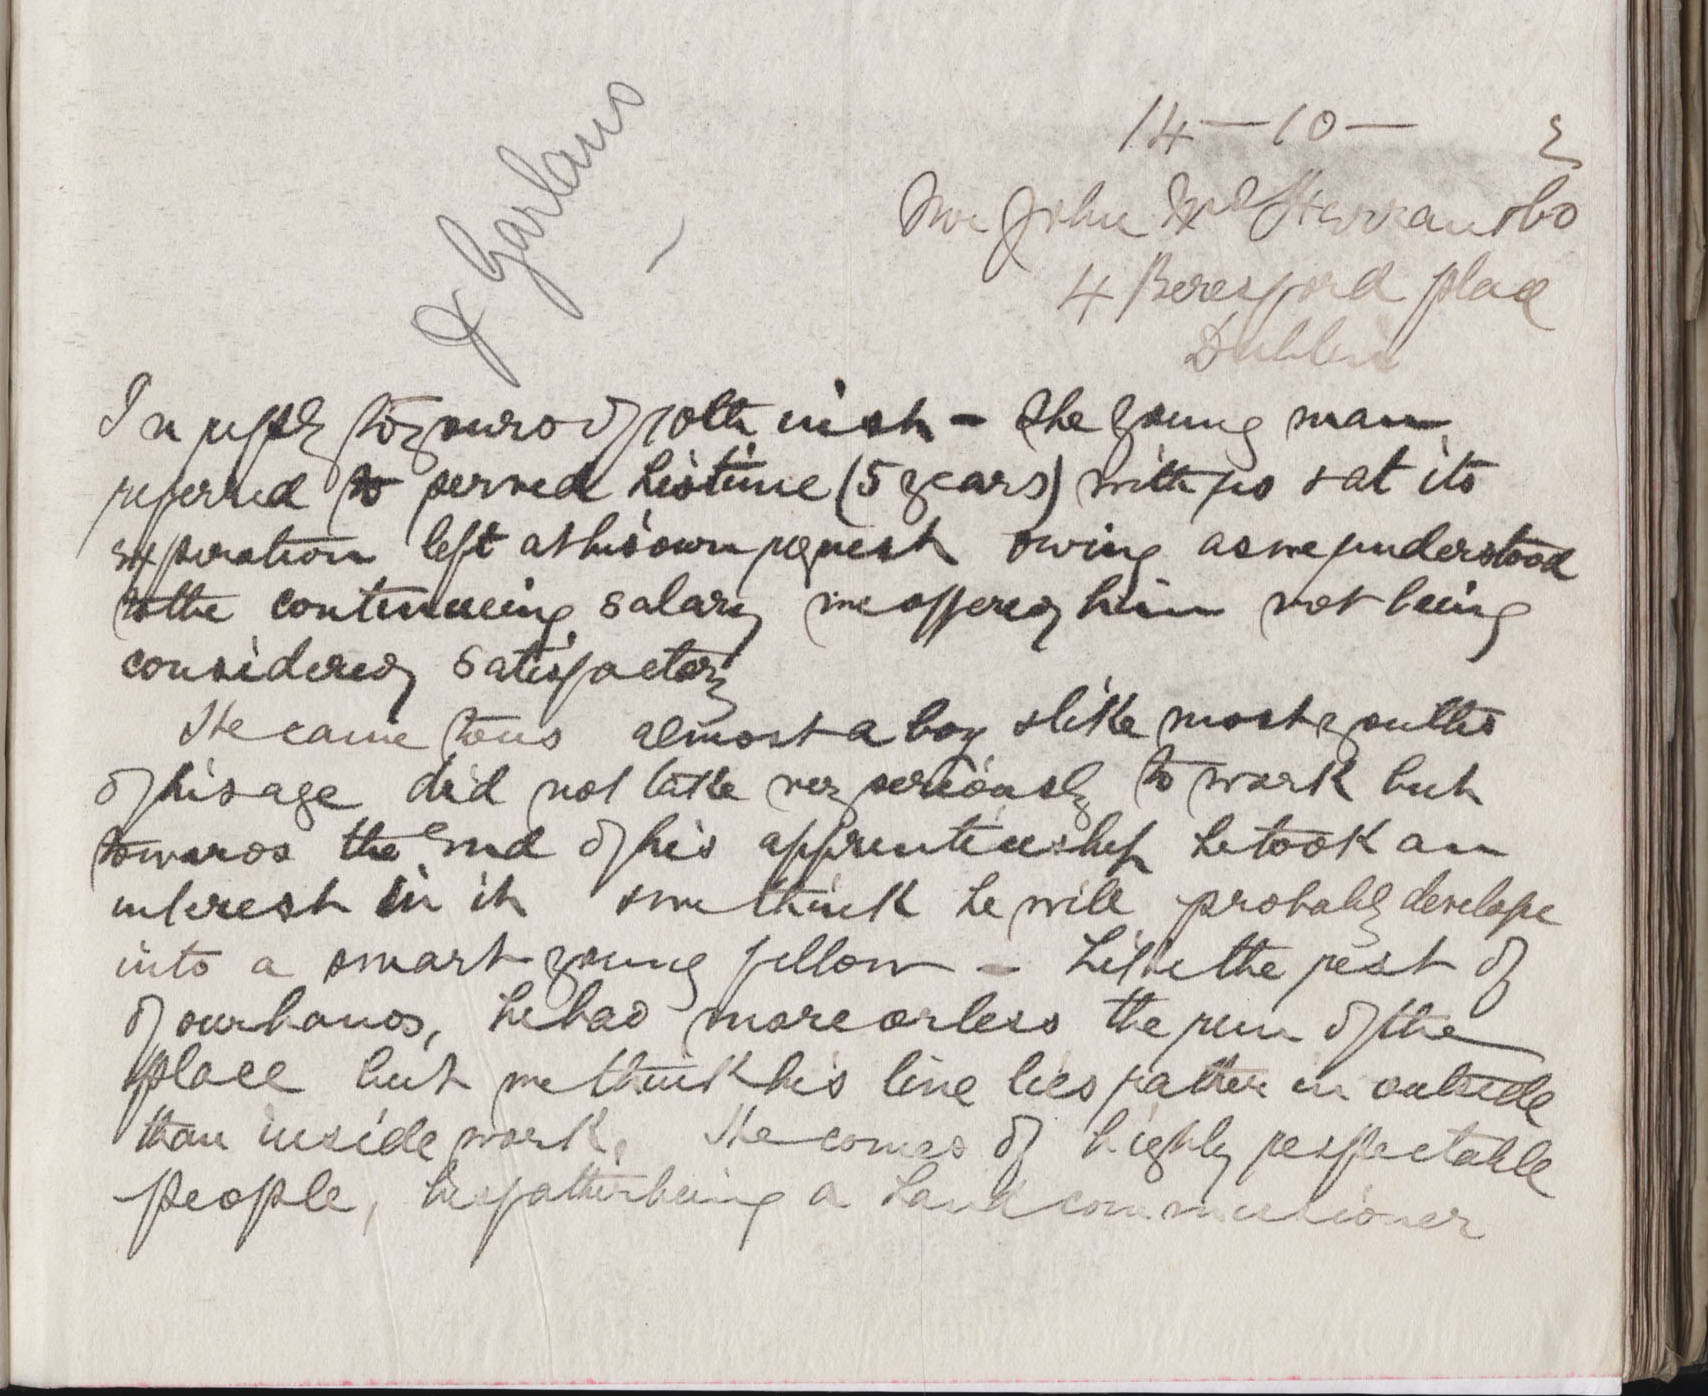 & Garland
14 — 10 —
Mr John Mc Ferran & Co
4 Beresford place
Dublin
In reply to yours of 10th inst - the young man
referred to served his time (5 years) with us & at its
expiration left at his own request owing as we understood
to the continuing salary we offered him not being
considered satisfactory
He came to us almost a boy & like most youths
of his age did not take very seriously to work but
towards the end of his apprenticeship he took an
interest in it & we think he will probably develope
into a smart young fellow - Like the rest of
of our hands, he had more or less the run of the
place but we think his line lies rather in outside
than inside work, He comes of highly respectable
people, his father being a Land commissioner